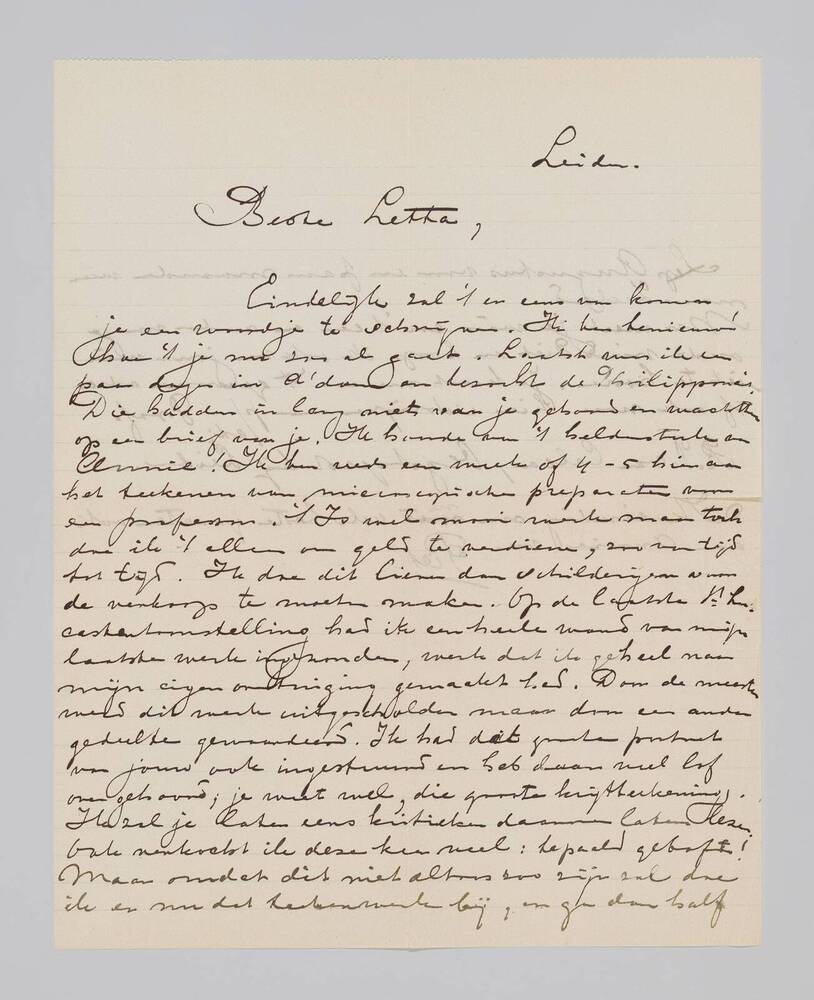 Leiden.
Beste Letta,
Eindelijk zal 't er eens van komen
je een woordje te schrijven. Ik ben benieuwd
hoe 't je nu zoo al gaat. Laatst was ik een
paar dagen in A'dam en bezocht de Philippona's.
Die hadden in lang niet van je gehoord en wachtten
op een brief van je. Ik hoorde van 't heldenstuk van
Annie! Ik ben reeds een week of 4-5 hier aan
het teekenen van microscopische preparaten voor
een professor. 't Is wel mooi werk maar toch
doe ik 't alleen om geld te verdienen, zoo van tijd
tot tijd. Ik doe dit liever dan schilderijen voor
de verkoop te moeten maken. Op de laatste St Lu-
castentoonstelling had ik een heele wand van mijn
laatste werk ingezonden, werk dat ik geheel naar
mijn eigen overtuiging gemaakt had. Door de meesten
werd dit werk uitgescholden maar door een ander
gedeelte gewaardeerd. Ik had dat groote portret
van jouw ook ingestuurd en heb daar veel lof
over gehoord; je weet wel, die groote krijtteekening.
Ik zal je later eens kritieken daarover laten lezen.
Ook verkocht ik deze keer veel: bepaald geboft!
Maar omdat dit niet altoos zoo zijn zal doe
ik er nu dat teekenwerk bij, en ga dan half